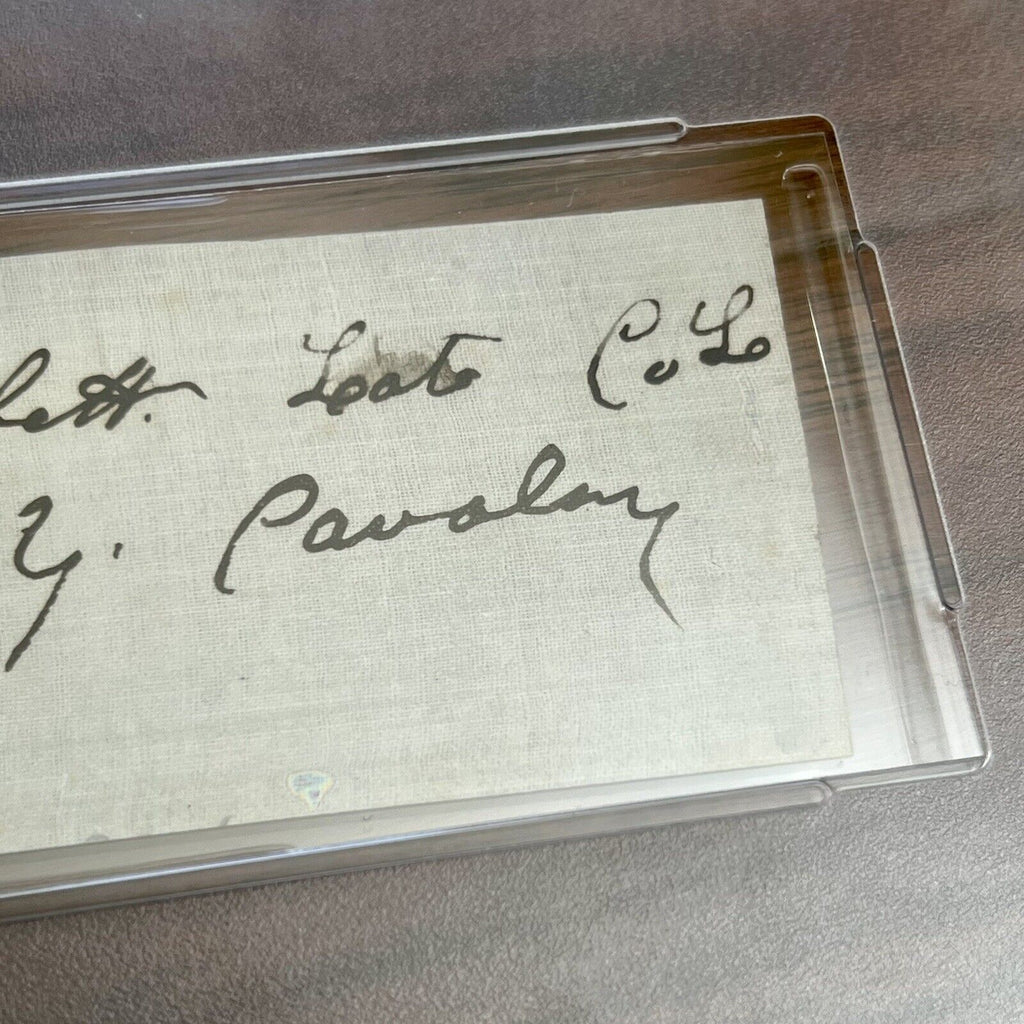 lett. Late Co. L
Y. Cavalry